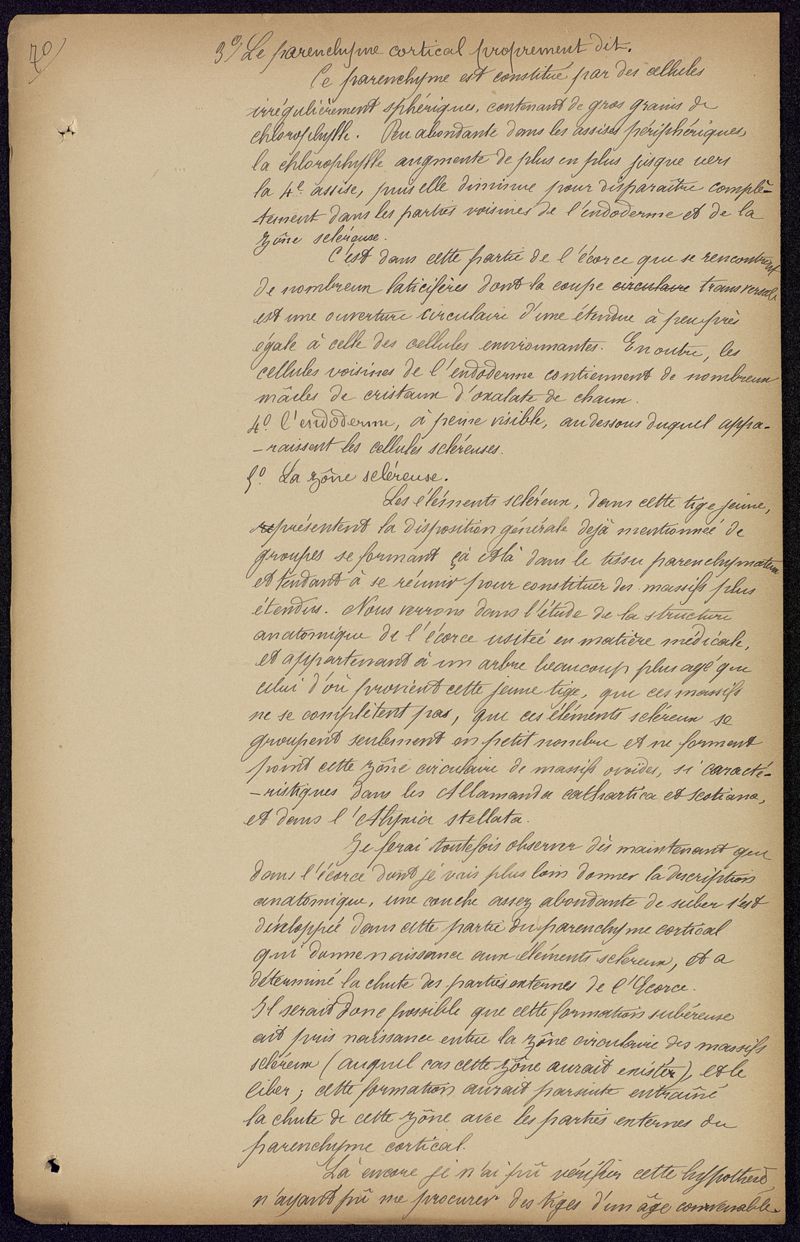 70
3º/ Le parenchyme cortical proprement dit.
Ce parenchyme est constitué par des cellules
irrégulièrement sphériques, contenant de gros grains de
chlorophylle. Peu abondante dans les assises périphériques,
la chlorophylle augmente de plus en plus jusque vers
la 4e assise, puis elle diminue pour disparaître complè-
-tement dans les parties voisines de l'endoderme et de la
zône scléreuse.
C'est dans cette partie de l'écorce que se rencontrent
de nombreux laticifères dont la coupe circulaire transversale
est une ouverture circulaire d'une étendue à peu près
égale à celle des cellules environnantes. En outre, les
cellules voisines de l'endoderme contiennent de nombreux
mâcles de cristaux d'oxalate de chaux.
4º l'endoderme, à peine visible, au dessous duquel appa-
-raissent les cellules scléreuses.
5º La zône scléreuse.
Les éléments scléreux, dans cette tige jeune,
représentent la disposition générale dejà mentionnée de
groupes se formant çà et là dans le tissu parenchymateux
et tendant à se réunir pour constituer des massifs plus
étendus. Nous verrons dans l'étude de la structure
anatomique de l'écorce usitée en matière médicale,
et appartenant à un arbre beaucoup plus agé que
celui d'où provient cette jeune tige, que ces massifs
ne se complètent pas, que ces éléments scléreux se
groupent seulement en petit nombre et ne forment
point cette zône circulaire de massifs ovoides, si caracté-
-ristiques dans les Allamanda cathartica et Scotiana,
et dans l'Alyxia stellata.
Je ferai toutefois observer dès maintenant que
dans l'écorce dont je vais plus loin donner la description
anatomique, une couche assez abondante de suber s'est
développée dans cette partie du parenchyme cortical
qui donne naissance aux éléments scléreux, et a
déterminé la chute des parties externes de l'Ecorce.
Il serait donc possible que cette formation subéreuse
ait pris naissance entre la zône circulaire des massifs
scléreux (auquel cas cette zône aurait existée), et le
liber; cette formation aurait par suite entraîné
la chute de cette zône avec les parties externes du
parenchyme cortical.
Là encore je n'ai pû vérifier cette hypothèse
n'ayant pû me procurer des tiges d'un âge convenable.